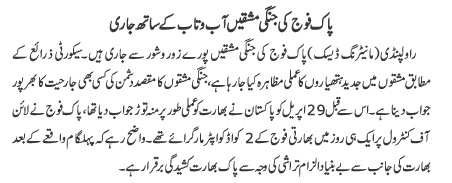 پاک فوج کی جنگی مشقیں آب و تاب کے ساتھ جاری
راولپنڈی (مانیٹرنگ ڈیسک) پاک فوج کی جنگی مشقیں پورے زور و شور سے جاری ہیں۔ سیکورٹی ذرائع کے
مطابق مشقوں میں جدید ہتھیاروں کا عملی مظاہرہ کیا جا رہا ہے، جنگی مشقوں کا مقصد دشمن کی کسی بھی جارحیت کا بھرپور
جواب دینا ہے۔ اس سے قبل 29 اپریل کو پاکستان نے بھارت کو عملی طور پر منہ توڑ جواب دیا تھا، پاک فوج نے لائن
آف کنٹرول پر ایک ہی روز میں بھارتی فوج کے 2 کواڈ کواپٹر مار گرائے تھے۔ واضح رہے کہ پہلگام واقعے کے بعد
بھارت کی جانب سے بے بنیاد الزام تراشی کی وجہ سے پاک بھارت کشیدگی برقرار ہے۔